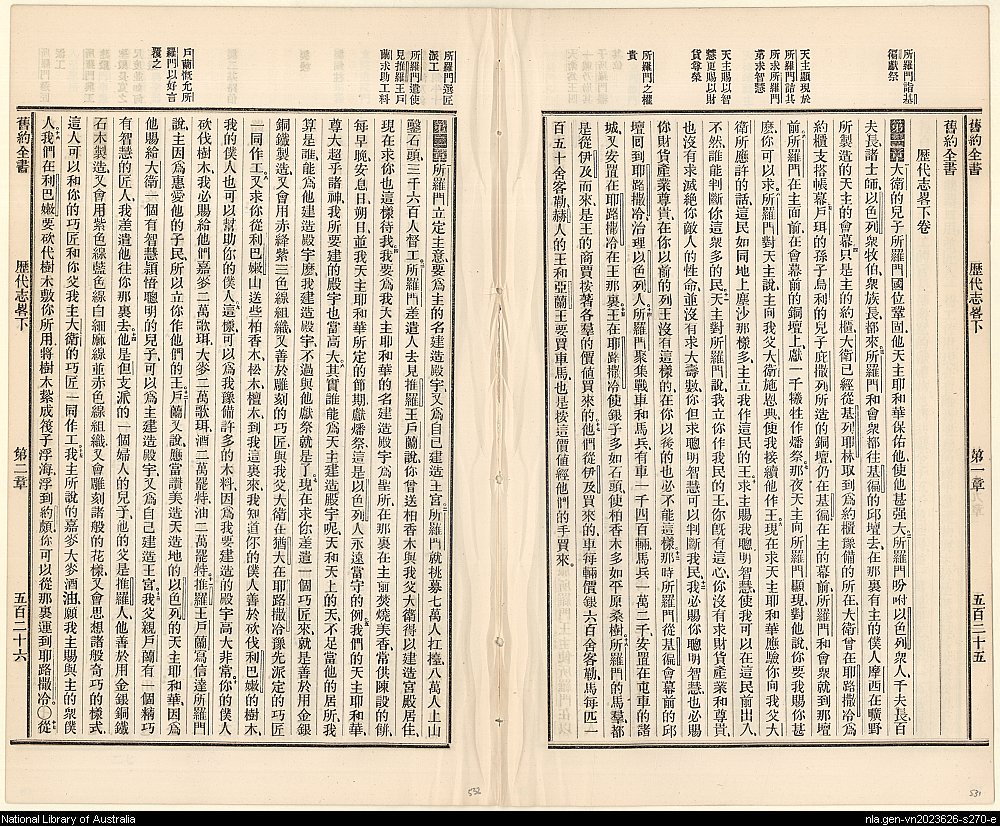 舊約全書 歷代志畧下 第一章 五百二十五
所羅門詣基
徧獻祭
天主顯現於
所羅門詰其
所求所羅門
第求智慧
天主賜以智
慧更賜以財
貨尊榮
所羅門之權
貴
舊約全書
歷代志畧下卷
第一章 大衛的兒子所羅門國位鞏固、他天主耶和華保佑他使他甚强大、所羅門吩咐以色列衆人、千夫長、百
夫長、諸士師、以色列衆牧伯、衆族長、都來、所羅門和會衆都往基徧的邱壇去、在那裏有主的僕人摩西在曠野
所製造的天主的會幕、只是主的約櫃、大衛已經從基列耶林取到爲約櫃豫備的所在、大衛曾在耶路撒冷爲
約櫃支搭帳幕、戶珥的孫子烏利的兒子庇撒列所造的銅壇、仍在基徧在主的幕前、所羅門和會衆就到那壇
前、所羅門在主面前、在會幕前的銅壇上、獻一千犧牲作燔祭、那夜天主向所羅門顯現、對他說、你要我賜你甚
麽、你可以求、所羅門對天主說、主向我父大衛施恩典、使我接續他作王、現在求天主耶和華應驗你向我父大
衛所應許的話、這民如同地上塵沙那樣多、主立我作這民的王、求主賜我聰明智慧、使我可以在這民前出入、
不然、誰能判斷你這衆多的民、天主對所羅門說、我立你作我民的王、你旣有這心、你沒有求財貨產業和尊貴、
也沒有求滅絶你敵人的性命、並沒有求大壽數、你但求聰明智慧可以判斷我民、我必賜你聰明智慧、也必賜
你財貨產業尊貴、在你以前的列王沒有這樣的、在你以後的也必不能這樣、那時所羅門從基徧會幕前的邱
壇、回到耶路撒冷、治理以色列人、所羅門聚集戰車和馬兵、有車一千四百輛、馬兵一萬二千、安置在屯車的諸
城、又安置在耶路撒冷在王那裏、王在耶路撒冷使銀子多如石頭、使柏香木多如平原桑樹、所羅門的馬羣、都
是從伊及而來、是王的商賈按著各羣的價値買來的、他們從伊及買來的、車每輛價銀六百舍客勒、馬每匹一
百五十舍客勒、赫人的王和亞蘭王要買車馬、也是按這價値經他們的手買來。
所羅門選匠
派工
所羅門遣使
見推羅王戶
蘭求助工料
戶蘭慨允所
羅門以好言
覆之
第二章 所羅門立定主意、要爲主的名建造殿宇、又爲自已建造王宮、所羅門就挑募七萬人扛擡、八萬人上山
鑿石頭、三千六百人督工、所羅門差遣人去見推羅王戶蘭說、你曾送柏香木與我父大衛、得以建造宮殿居住、
現在求你也這樣待我、我要爲我天主耶和華的名建造殿宇爲聖所、在那裏在主前焚燒美香、常供陳設的餅、
每早晚、安息日、朔日、並我天主耶和華所定的節期、獻燔祭、這是以色列人永遠當守的例、我們的天主耶和華、
尊大超乎諸神、我所要建的殿宇也當高大、其實誰能爲天主建造殿宇呢、天和天上的天、不足當他的居所、我
算是誰、能爲他建造殿宇麽、我建造殿宇、不過與他獻祭就是了、現在求你差遣一個巧匠來、就是善於用金銀
銅鐵製造、又會用赤絳紫三色線組織、又善於雕刻的巧匠、與我父大衛在猶大在耶路撒冷豫先派定的巧匠
一同作工、又求你從利巴嫩山送些柏香木、松木、檀木、到我這裏來、我知道你的僕人善於砍伐利巴嫩的樹木、
我的僕人也可以幫助你的僕人、這樣、可以爲我豫備許多的木料、因爲我要建造的殿宇高大非常、你的僕人
砍伐樹木、我必賜給他們嘉麥二萬歌珥、大麥二萬歌珥、酒二萬罷特、油二萬罷特、推羅王戶蘭寫信達所羅門
說、主因爲惠愛他的子民、所以立你作他們的王、戶蘭又說、應當讚美造天造地的以色列的天主耶和華、因爲
他賜給大衛一個有智慧穎悟聰明的兒子、可以爲主建造殿宇、又爲自己建造王宮、我父親戶蘭有一個精巧
有智慧的匠人、我差遣他往你那裏去、他是但支派的一個婦人的兒子、他的父是推羅人、他善於用金銀銅鐵
石木製造、又會用紫色線藍色線白細麻線並赤色線組織、又會雕刻諸般的花樣、又會思想諸般奇巧的樣式、
這人可以和你的巧匠、和你父我主大衛的巧匠、一同作工、我主所說的嘉麥大麥酒油、願我主賜與主的衆僕
人、我們在利巴嫩、要砍伐樹木敷你所用、將樹木紮成筏子浮海、浮到約頗、你可以從那裏運到耶路撒冷、〇從
舊約全書 歷代志畧下 第二章 五百二十六
532
531
National Library of Australia
nla.gen-vn2023626-s270-e